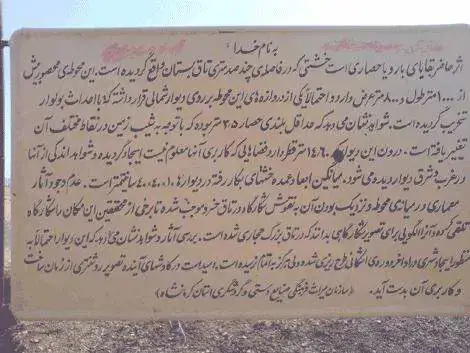 به نام خدا
اثر حاضر بقایای بارو یا حصاری است خشتی که در فاصله‌ی چند صد متری تاق بستان واقع گردیده است. این محوطه‌ی محصور بیش
از ۱۰۰۰ متر طول و ۸۰۰ متر عرض دارد و احتمالا یکی از دروازه‌های این محوطه بر روی دیوار شمالی قرار داشته که با احداث بولوار
تخریب گردیده است. شواهد نشان می‌دهد که حداقل بلندی حصار ۳/۵ متر بوده که با توجه به شیب زمین در نقاط مختلف آن
تغییر یافته است. درون این دیوار که ۱۴/۶۰ متر قطر دارد فضاهایی که کاربری آنها معلوم نیست ایجاد گردیده و شواهد اندکی از آنها
در غرب و شرق دیوار دیده می‌شود. میانگین ابعاد عمده خشتهای بکار رفته در دیوارها ۱۰،۴۰،۴۰ سانتیمتر است. عدم وجود آثار
معماری در میانه‌ی محوطه و نزدیک بودن آن به نقوش شکار گاه در تاق خسرو موجب شده تا برخی از محققین این مکان را شکارگاه
تلقی کرده و آنرا الگویی برای تصویر شکارگاهی بدانند که در تاق بزرگ حجاری شده است. بررسی آثار و شواهد نشان می‌دهد که این دیوار احتمالا به
منظور ایجاد شهری در ادوار خسرو دوی اشکانی طرح ریزی شده ولی هرگز به اتمام نرسیده است. امید است در کاوشهای آینده تصویر روشنتری از زمان ساخت
و کاربری آن بدست آید. (سازمان میراث فرهنگی صنایع دستی و گردشگری استان کرمانشاه)